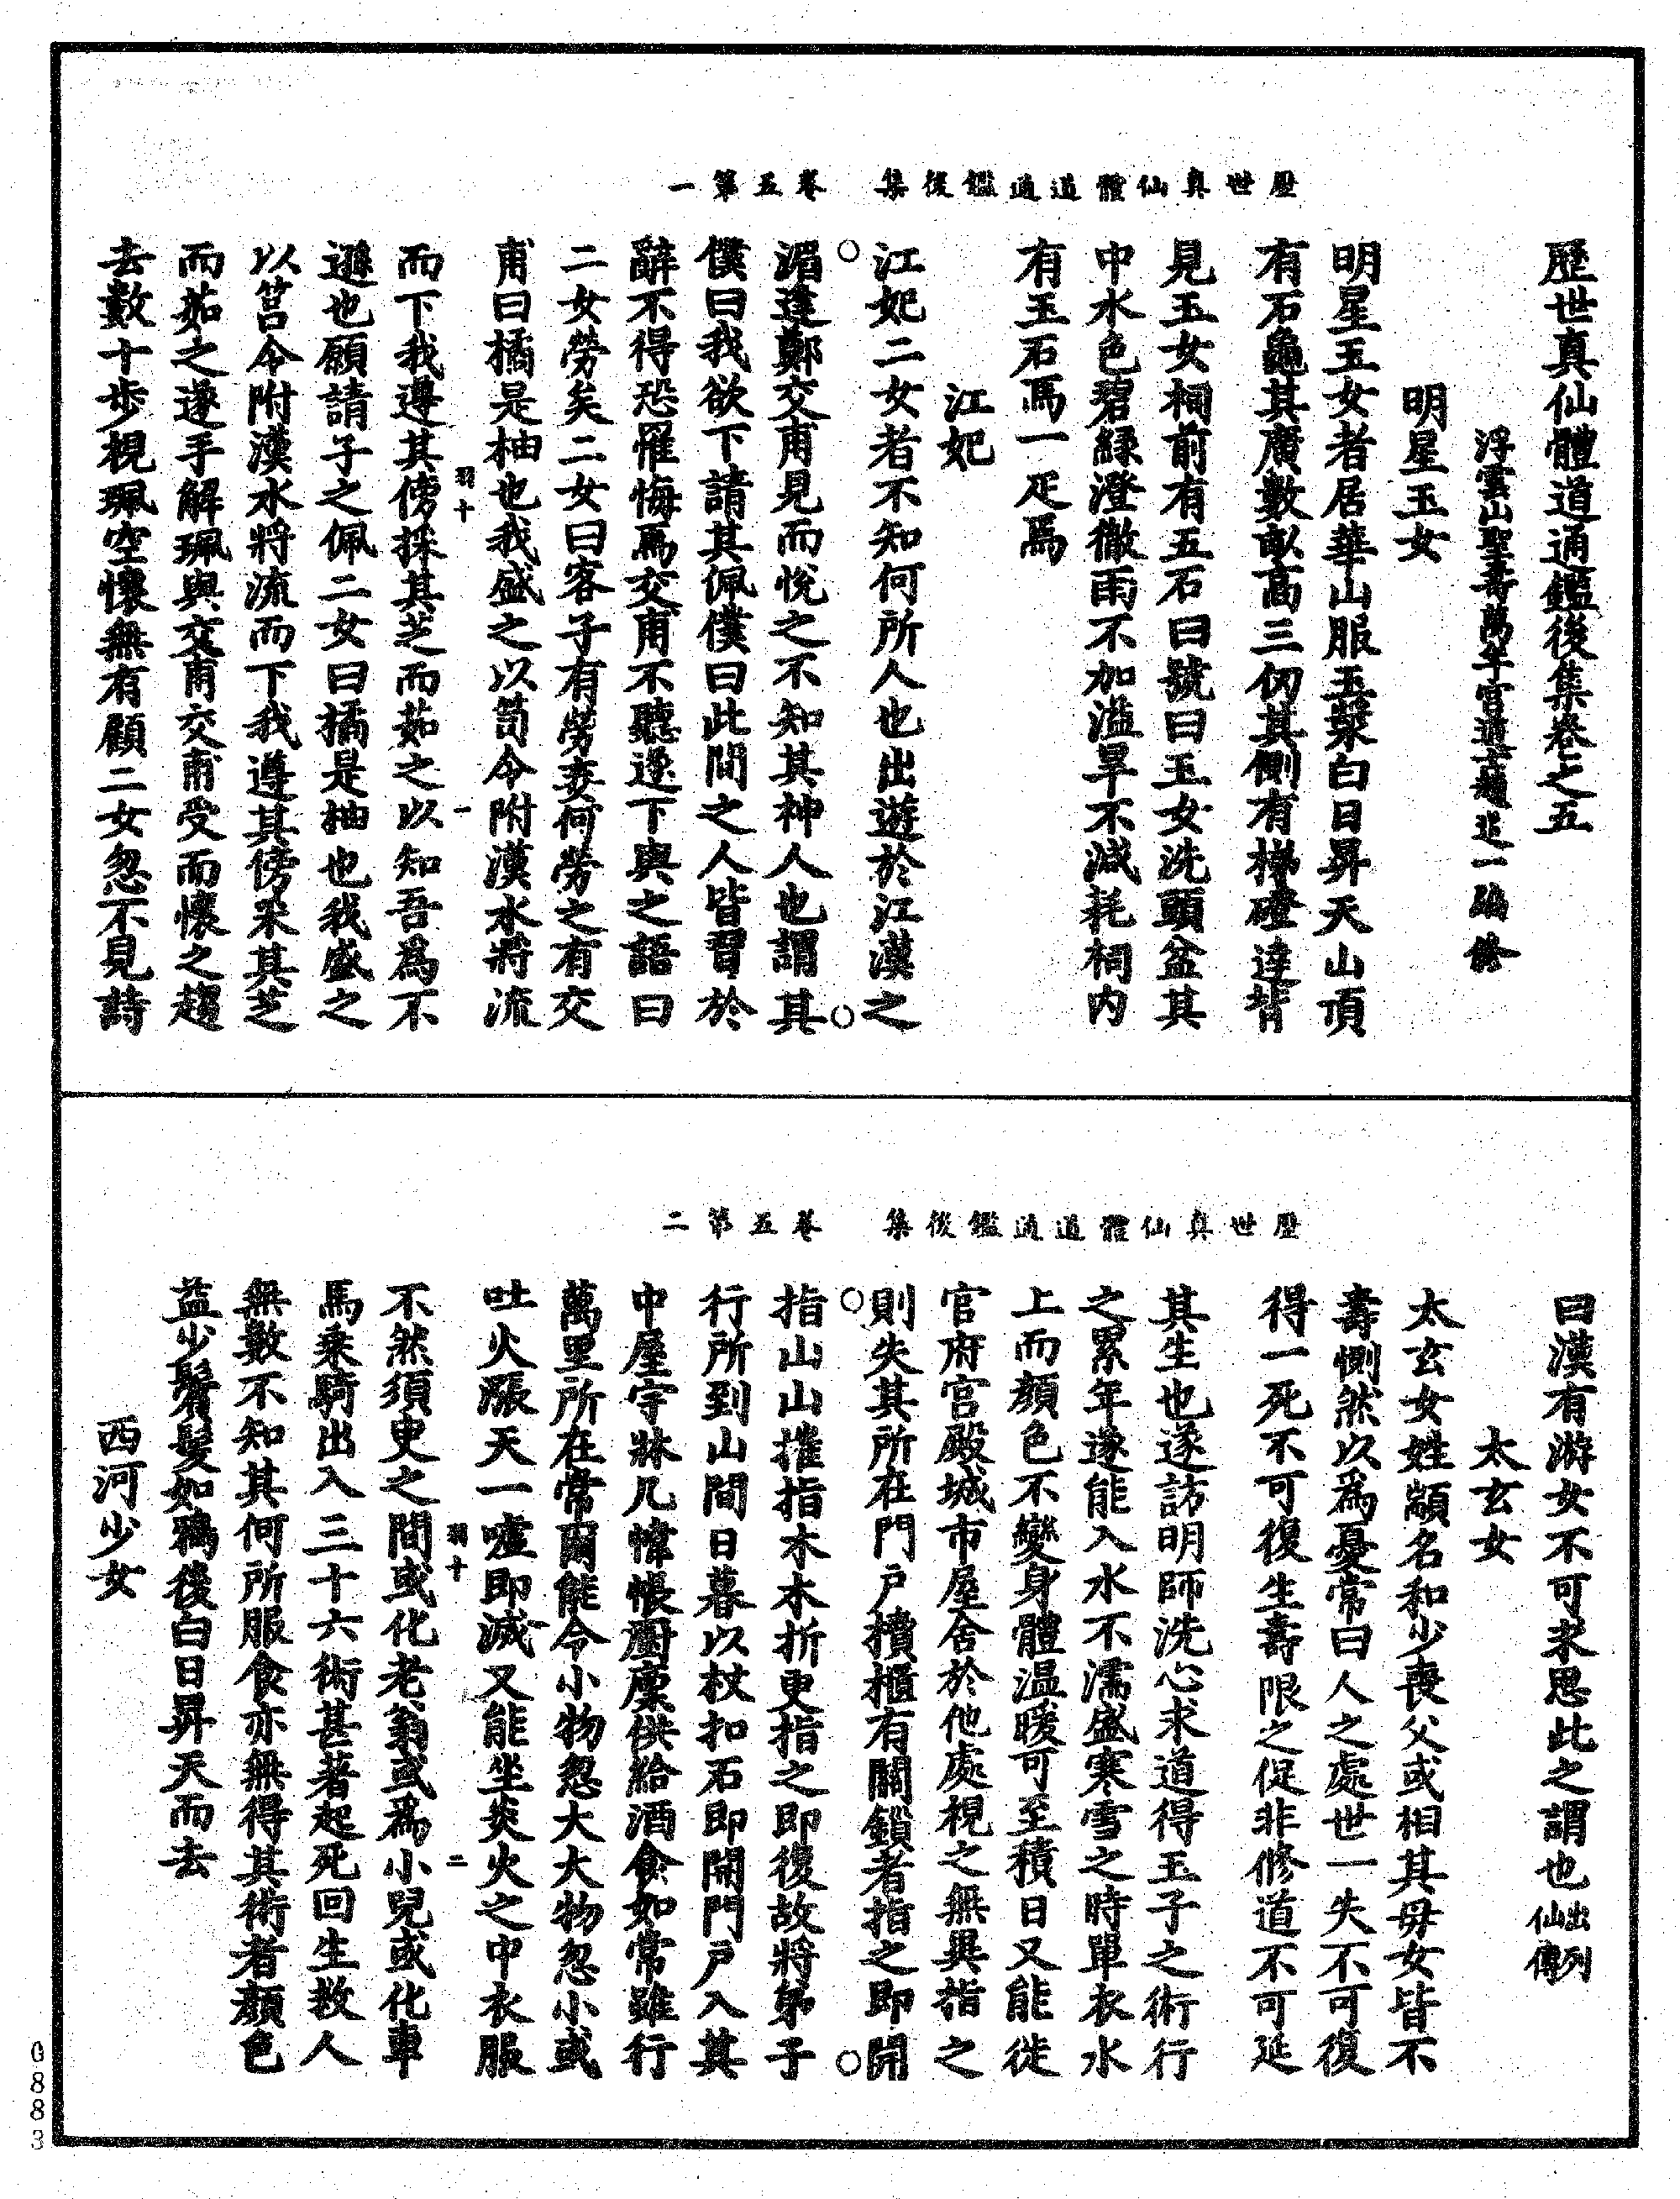 歷世真仙體道通鑑後集 卷五第一
歷世真仙體道通鑑後集卷之五
浮雲山聖壽萬年宮道士趙道一編修
明星玉女
明星玉女者居華山服玉漿白日昇天山頂
有石龜其廣數畝高三仞其側有梯磴達皆
見玉女祠前有五石臼號曰玉女洗頭盆其
中水色碧緑澄徹雨不加溢旱不減耗祠内
有玉石馬一疋焉
江妃
江妃二女者不知何所人也出遊於江漢之
湄逢鄭交甫見而悅之不知其神人也謂其
僕曰我欲下請其佩僕曰此間之人皆習於
辭不得恐罹悔焉交甫不聽遂下與之語曰
二女勞矣二女曰客子有勞妾何勞之有交
甫曰橘是柚也我盛之以笥令附漢水將流
羽十
一
而下我遵其傍採其芝而茹之以知吾為不
遜也願請子之佩二女曰橘是柚也我盛之
以筥令附漢水將流而下我遵其傍采其芝
而茹之遂手解珮與交甫交甫受而懷之趨
去數十步視珮空懷無有顧二女忽不見詩
歷世真仙體道通鑑後集 卷五第二
曰漢有游女不可求思此之謂也出列仙傳
太玄女
太玄女姓顓名和少喪父或相其母女皆不
壽惻然以為憂常曰人之處世一失不可復
得一死不可復生壽限之促非修道不可延
其生也遂訪明師洗心求道得玉子之術行
之累年遂能入水不濡盛寒雪之時單衣水
上而顏色不變身體温暖可至積日又能徙
官府宫殿城市屋舍於他處視之無異指之
則失其所在門戶櫝櫃有關鎖者指之即開
指山山摧指木木折更指之即復故將弟子
行所到山間日暮以杖扣石即開門戶入其
中屋宇牀几幃帳廚廩供給酒食如常雖行
萬里所在常爾能令小物忽大大物忽小或
吐火漲天一噓即滅又能坐炎火之中衣服
羽十
二
不然須臾之間或化老翁或為小兒或化車
馬乘騎出入三十六術甚著起死回生救人
無數不知其何所服食亦無得其術者顏色
益少鬢髮如鴉後白日昇天而去
西河少女
0883